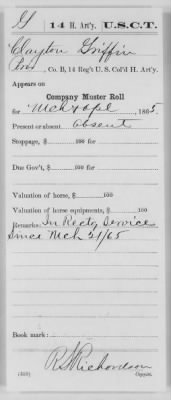 G 14 H. Art'y. U.S.C.T.
Clayton Griffin
Pvt, Co. B, 14 Reg't U. S. Col'd H. Art'y.
Appears on
Company Muster Roll
for Mch & Apl, 1865
Present or absent Absent
Stoppage, $ 100 for
Due Gov't, $ 100 for
Valuation of horse, $ 100
Valuation of horse equipments, $ 100
Remarks: In Rectg Service
Since Mch 21/65
Book mark:
R S Richardson
(359) Copyist.